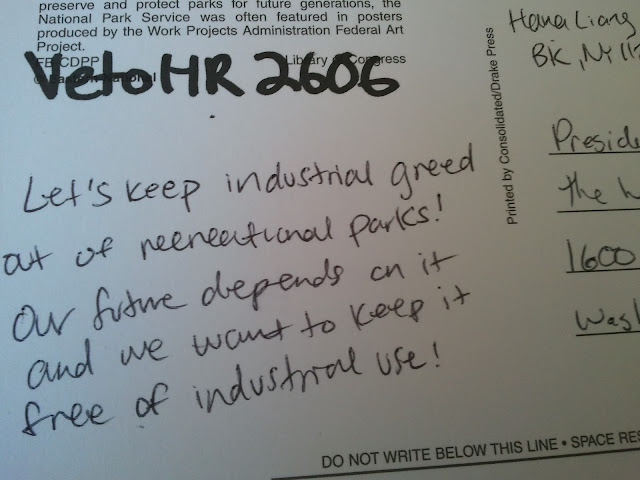 preserve and protect parks for future generations, the
National Park Service was often featured in posters
produced by the Work Projects Administration Federal Art
Project.
Library of Congress
Veto HR 2606
Let's keep industrial greed
out of recreational parks!
Our future depends on it
and we want to keep it
free of industrial use!
Printed by Consolidated/Drake Press
Hana Liang
BK, NY 11
Presid
The W
1600
Wash
DO NOT WRITE BELOW THIS LINE • SPACE RES